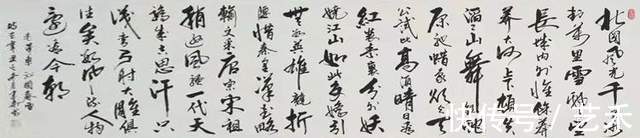 北国风光千里冰
封万里雪飘望
长城内外惟馀莽
莽大河上下顿失
滔滔山舞银蛇
原驰蜡象欲与天
公试比高须晴日看
红装素裹分外妖
娆江山如此多娇引
无数英雄竞折
腰惜秦皇汉武略
输文采唐宗宋祖
稍逊风骚一代天
骄成吉思汗只
识弯弓射大雕俱
往矣数风流人物
还看今朝
毛泽东沁园春雪
快传号/艺禾